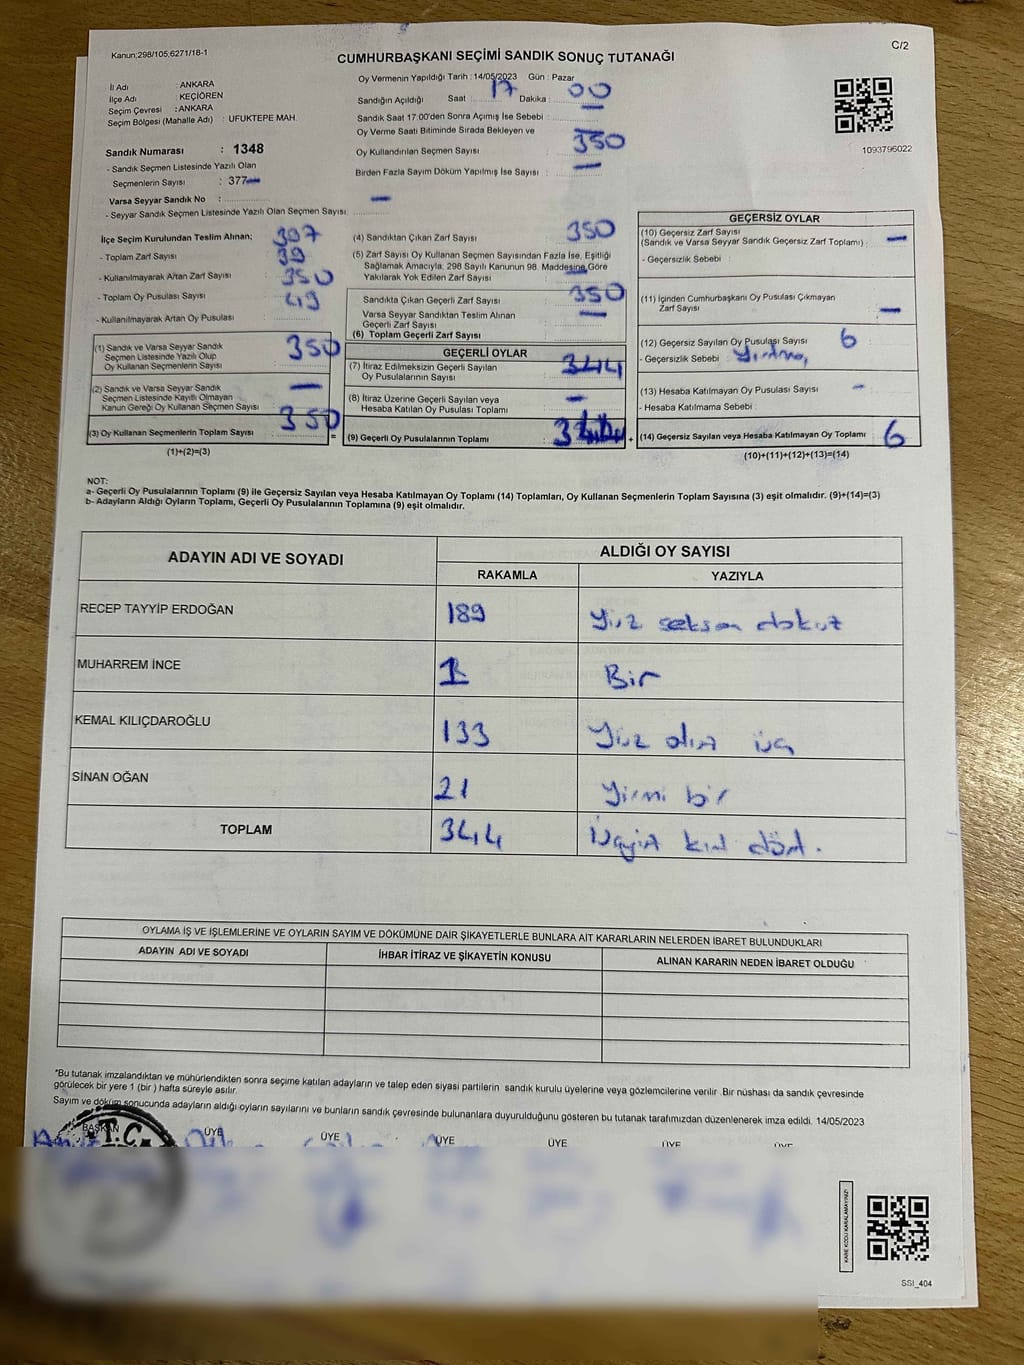 Kanun;298/105,6271/18-1
C/2
CUMHURBAŞKANI SEÇİMİ SANDIK SONUÇ TUTANAĞI
İl Adı : ANKARA
İlçe Adı : KEÇİÖREN
Seçim Çevresi : ANKARA
Seçim Bölgesi (Mahalle Adı) : UFUKTEPE MAH.
Sandık Numarası : 1348
- Sandık Seçmen Listesinde Yazılı Olan
Seçmenlerin Sayısı : 377
Varsa Seyyar Sandık No : –
- Seyyar Sandık Seçmen Listesinde Yazılı Olan Seçmen Sayısı:
Oy Vermenin Yapıldığı Tarih : 14/05/2023 Gün : Pazar
Sandığın Açıldığı Saat : 17 Dakika : 00
Sandık Saat 17:00'den Sonra Açımış İse Sebebi : –
Oy Verme Saati Bitiminde Sırada Bekleyen ve
Oy Kullandırılan Seçmen Sayısı : 350
Birden Fazla Sayım Döküm Yapılmış İse Sayısı : –
1093796022
İlçe Seçim Kurulundan Teslim Alınan;
- Toplam Zarf Sayısı : 397
- Kullanılmayarak Artan Zarf Sayısı : 39
- Toplam Oy Pusulası Sayısı : 350
- Kullanılmayarak Artan Oy Pusulası : 49
(1) Sandık ve Varsa Seyyar Sandık
Seçmen Listesinde Yazılı Olup
Oy Kullanan Seçmenlerin Sayısı : 350
(2) Sandık ve Varsa Seyyar Sandık
Seçmen Listesinde Kayıtlı Olmayan
Kanun Gereği Oy Kullanan Seçmen Sayısı : –
(3) Oy Kullanan Seçmenlerin Toplam Sayısı : 350 =
(1)+(2)=(3)
(4) Sandıktan Çıkan Zarf Sayısı : 350
(5) Zarf Sayısı Oy Kullanan Seçmen Sayısından Fazla İse, Eşitliği
Sağlamak Amacıyla, 298 Sayılı Kanunun 98. Maddesine Göre
Yakılarak Yok Edilen Zarf Sayısı : –
Sandıkta Çıkan Geçerli Zarf Sayısı : 350
Varsa Seyyar Sandıktan Teslim Alınan
Geçerli Zarf Sayısı : –
(6) Toplam Geçerli Zarf Sayısı
GEÇERLİ OYLAR
(7) İtiraz Edilmeksizin Geçerli Sayılan
Oy Pusulalarının Sayısı : 344
(8) İtiraz Üzerine Geçerli Sayılan veya
Hesaba Katılan Oy Pusulası Toplamı : –
(9) Geçerli Oy Pusulalarının Toplamı : 344 +
GEÇERSİZ OYLAR
(10) Geçersiz Zarf Sayısı
(Sandık ve Varsa Seyyar Sandık Geçersiz Zarf Toplamı) : –
- Geçersizlik Sebebi :
(11) İçinden Cumhurbaşkanı Oy Pusulası Çıkmayan
Zarf Sayısı : –
(12) Geçersiz Sayılan Oy Pusulası Sayısı : 6
- Geçersizlik Sebebi :
(13) Hesaba Katılmayan Oy Pusulası Sayısı : –
- Hesaba Katılmama Sebebi :
(14) Geçersiz Sayılan veya Hesaba Katılmayan Oy Toplamı : 6
(10)+(11)+(12)+(13)=(14)
NOT:
a- Geçerli Oy Pusulalarının Toplamı (9) ile Geçersiz Sayılan veya Hesaba Katılmayan Oy Toplamı (14) Toplamları, Oy Kullanan Seçmenlerin Toplam Sayısına (3) eşit olmalıdır. (9)+(14)=(3)
b- Adayların Aldığı Oyların Toplamı, Geçerli Oy Pusulalarının Toplamına (9) eşit olmalıdır.
ADAYIN ADI VE SOYADI ALDIĞI OY SAYISI
RAKAMLA YAZIYLA
RECEP TAYYİP ERDOĞAN 189 Yüz seksen dokuz
MUHARREM İNCE 1 Bir
KEMAL KILIÇDAROĞLU 133 Yüz otuz üç
SİNAN OĞAN 21 Yirmi bir
TOPLAM 344 Üçyüz kırk dört.
OYLAMA İŞ VE İŞLEMLERİNE VE OYLARIN SAYIM VE DÖKÜMÜNE DAİR ŞİKAYETLERLE BUNLARA AİT KARARLARIN NELERDEN İBARET BULUNDUKLARI
ADAYIN ADI VE SOYADI İHBAR İTİRAZ VE ŞİKAYETİN KONUSU ALINAN KARARIN NEDEN İBARET OLDUĞU
*Bu tutanak imzalandıktan ve mühürlendikten sonra seçime katılan adayların ve talep eden siyasi partilerin sandık kurulu üyelerine veya gözlemcilerine verilir. Bir nüshası da sandık çevresinde
görülecek bir yere 1 (bir) hafta süreyle asılır.
Sayım ve döküm sonucunda adayların aldığı oyların sayılarını ve bunların sandık çevresinde bulunanlara duyurulduğunu gösteren bu tutanak tarafımızdan düzenlenerek imza edildi. 14/05/2023
BAŞKAN ÜYE ÜYE ÜYE ÜYE ÜYE ÜYE
T.C.
KARE KODU KARALAMAYINIZ!
SSI_404